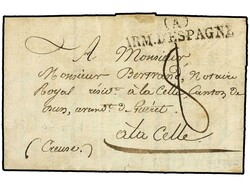 (A)
ARM. D'ESPAGNE
A Monsieur
Monsieur Bertrand, Notaire
Royal à la Celle Canton de
Dun, de Guéret
à la Celle
(Creuse)